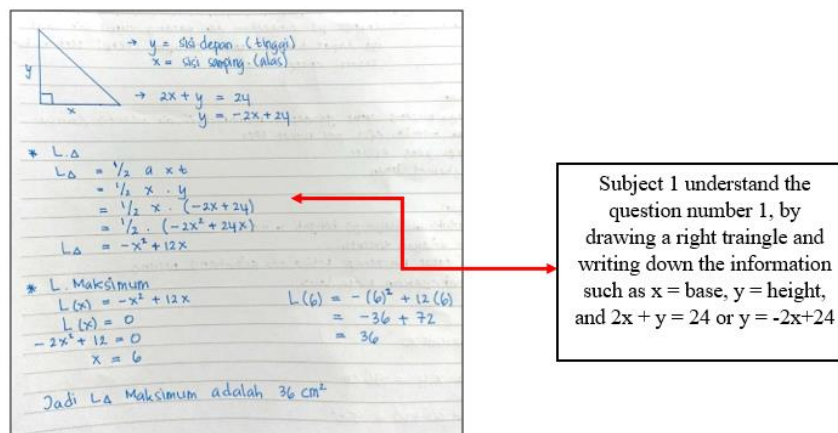 → y = sisi depan (tinggi)
x = sisi samping (alas)
y
x
→ 2x + y = 24
y = -2x + 24
* L.△
L△ = 1/2 a x t
= 1/2 x . y
= 1/2 x . (-2x + 24)
= 1/2 . (-2x² + 24x)
L△ = -x² + 12x
* L. Maksimum
L(x) = -x² + 12x
L(x) = 0
-2x² + 12 = 0
x = 6
L(6) = -(6)² + 12(6)
= -36 + 72
= 36
Jadi L△ Maksimum adalah 36 cm²
Subject 1 understand the
question number 1, by
drawing a right traingle and
writing down the information
such as x = base, y = height,
and 2x + y = 24 or y = -2x+24